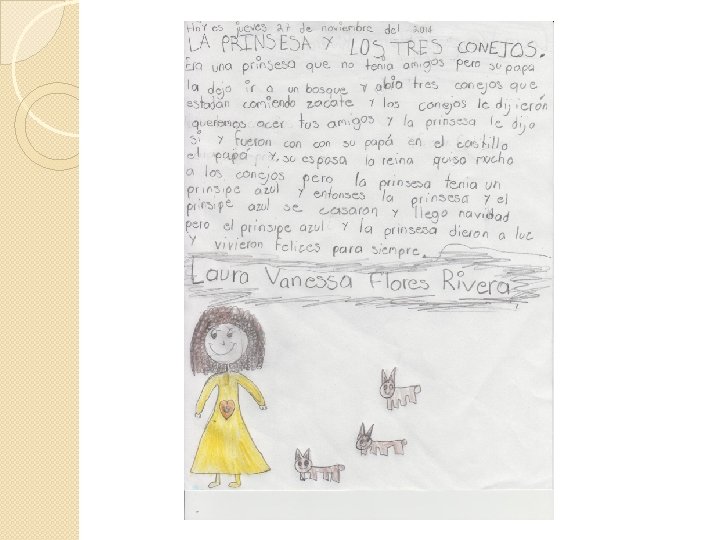 Hoy es jueves 27 de noviembre del 2014
LA PRINSESA Y LOS TRES CONEJOS.
Era una prinsesa que no tenia amigos pero su papa
la dejo ir a un bosque y abia tres conejos que
estadan comiendo zacate y los conejos le dijierón
queremos acer tus amigos y la prinsesa le dijo
si y fueron con con su papá en el castillo
el papá y su esposa la reina quiso mucho
a los conejos pero la prinsesa tenia un
prinsipe azul y entonses la prinsesa y el
prinsipe azul se casaron y llego navidad
pero el prinsipe azul y la prinsesa dieron a luc
y vivieron felices para siempre.
Laura Vanessa Flores Rivera